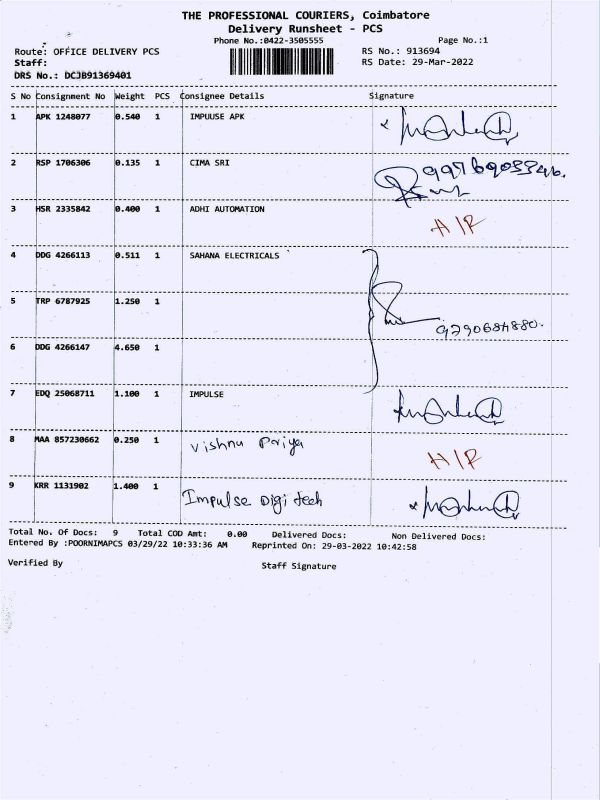 THE PROFESSIONAL COURIERS, Coimbatore
Delivery Runsheet - PCS
Phone No.:0422-3505555 Page No.:1
Route: OFFICE DELIVERY PCS RS No.: 913694
Staff: RS Date: 29-Mar-2022
DRS No.: DCJB91369401
S No Consignment No Weight PCS Consignee Details Signature
1 APK 1248077 0.540 1 IMPUUSE APK
2 RSP 1706306 0.135 1 CIMA SRI
3 HSR 2335842 0.400 1 ADHI AUTOMATION
4 DDG 4266113 0.511 1 SAHANA ELECTRICALS
5 TRP 6787925 1.250 1
6 DDG 4266147 4.650 1
7 EDQ 25068711 1.100 1 IMPULSE
8 MAA 857230662 0.250 1 Vishnu Priya
9 KRR 1131902 1.400 1 Impulse Digi tech
Total No. Of Docs: 9 Total COD Amt: 0.00 Delivered Docs: Non Delivered Docs:
Entered By :POORNIMAPCS 03/29/22 10:33:36 AM Reprinted On: 29-03-2022 10:42:58
Verified By Staff Signature